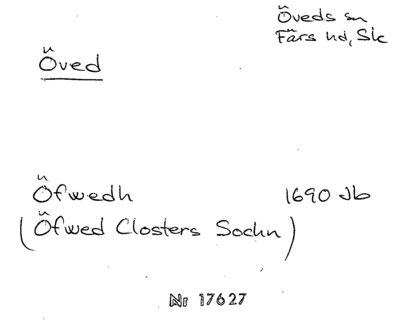 Öveds sn
Färs hd, Slc
Öved
Öfwedh 1690 Jb
(Öfwed Closters Sochn)
Nr 17627